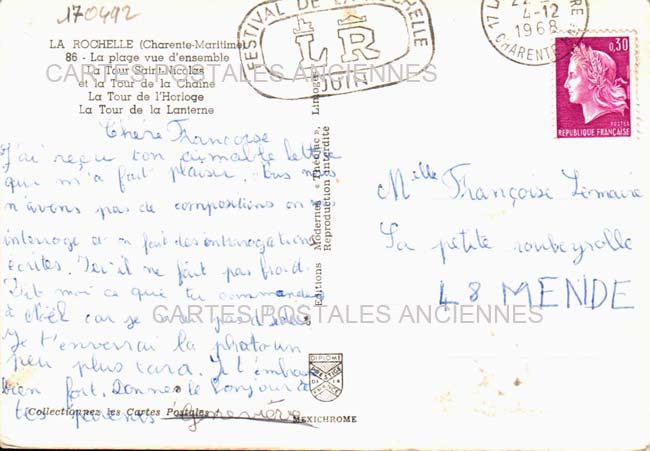 170492
LA ROCHELLE (Charente-Maritime)
86 - La plage vue d'ensemble
La Tour Saint-Nicolas
et la Tour de la Chaîne
La Tour de l'Horloge
La Tour de la Lanterne
FESTIVAL DE LA ROCHELLE
LR
JUIN
17 L
4-12
1968
CHARENTE
0,30
POSTES
REPUBLIQUE FRANÇAISE
CARTES POSTALES ANCIENNES
Chère Françoise
J'ai reçu ton aimable lettre
qui m'a fait plaisir. nous
n'avons pas de compositions on
interroge fait des interrogations
écrites. Ici il ne fait pas froid.
Dit moi ce que tu commandes
à Noël car je pas d'idées
Je t'enverrai la photo un
peu plus tard. Je t'embrasse
bien fort. Donnes le bonjour à
tes parents Geneviève
Editions Modernes « Théojac », Limoges
Reproduction interdite
Melle Françoise Lemaire
La petite roubeyrolle
48 MENDE
CARTES POSTALES ANCIENNES
DIPLOME
PRESTIGE
Collectionnez les Cartes Postales
MEXICHROME